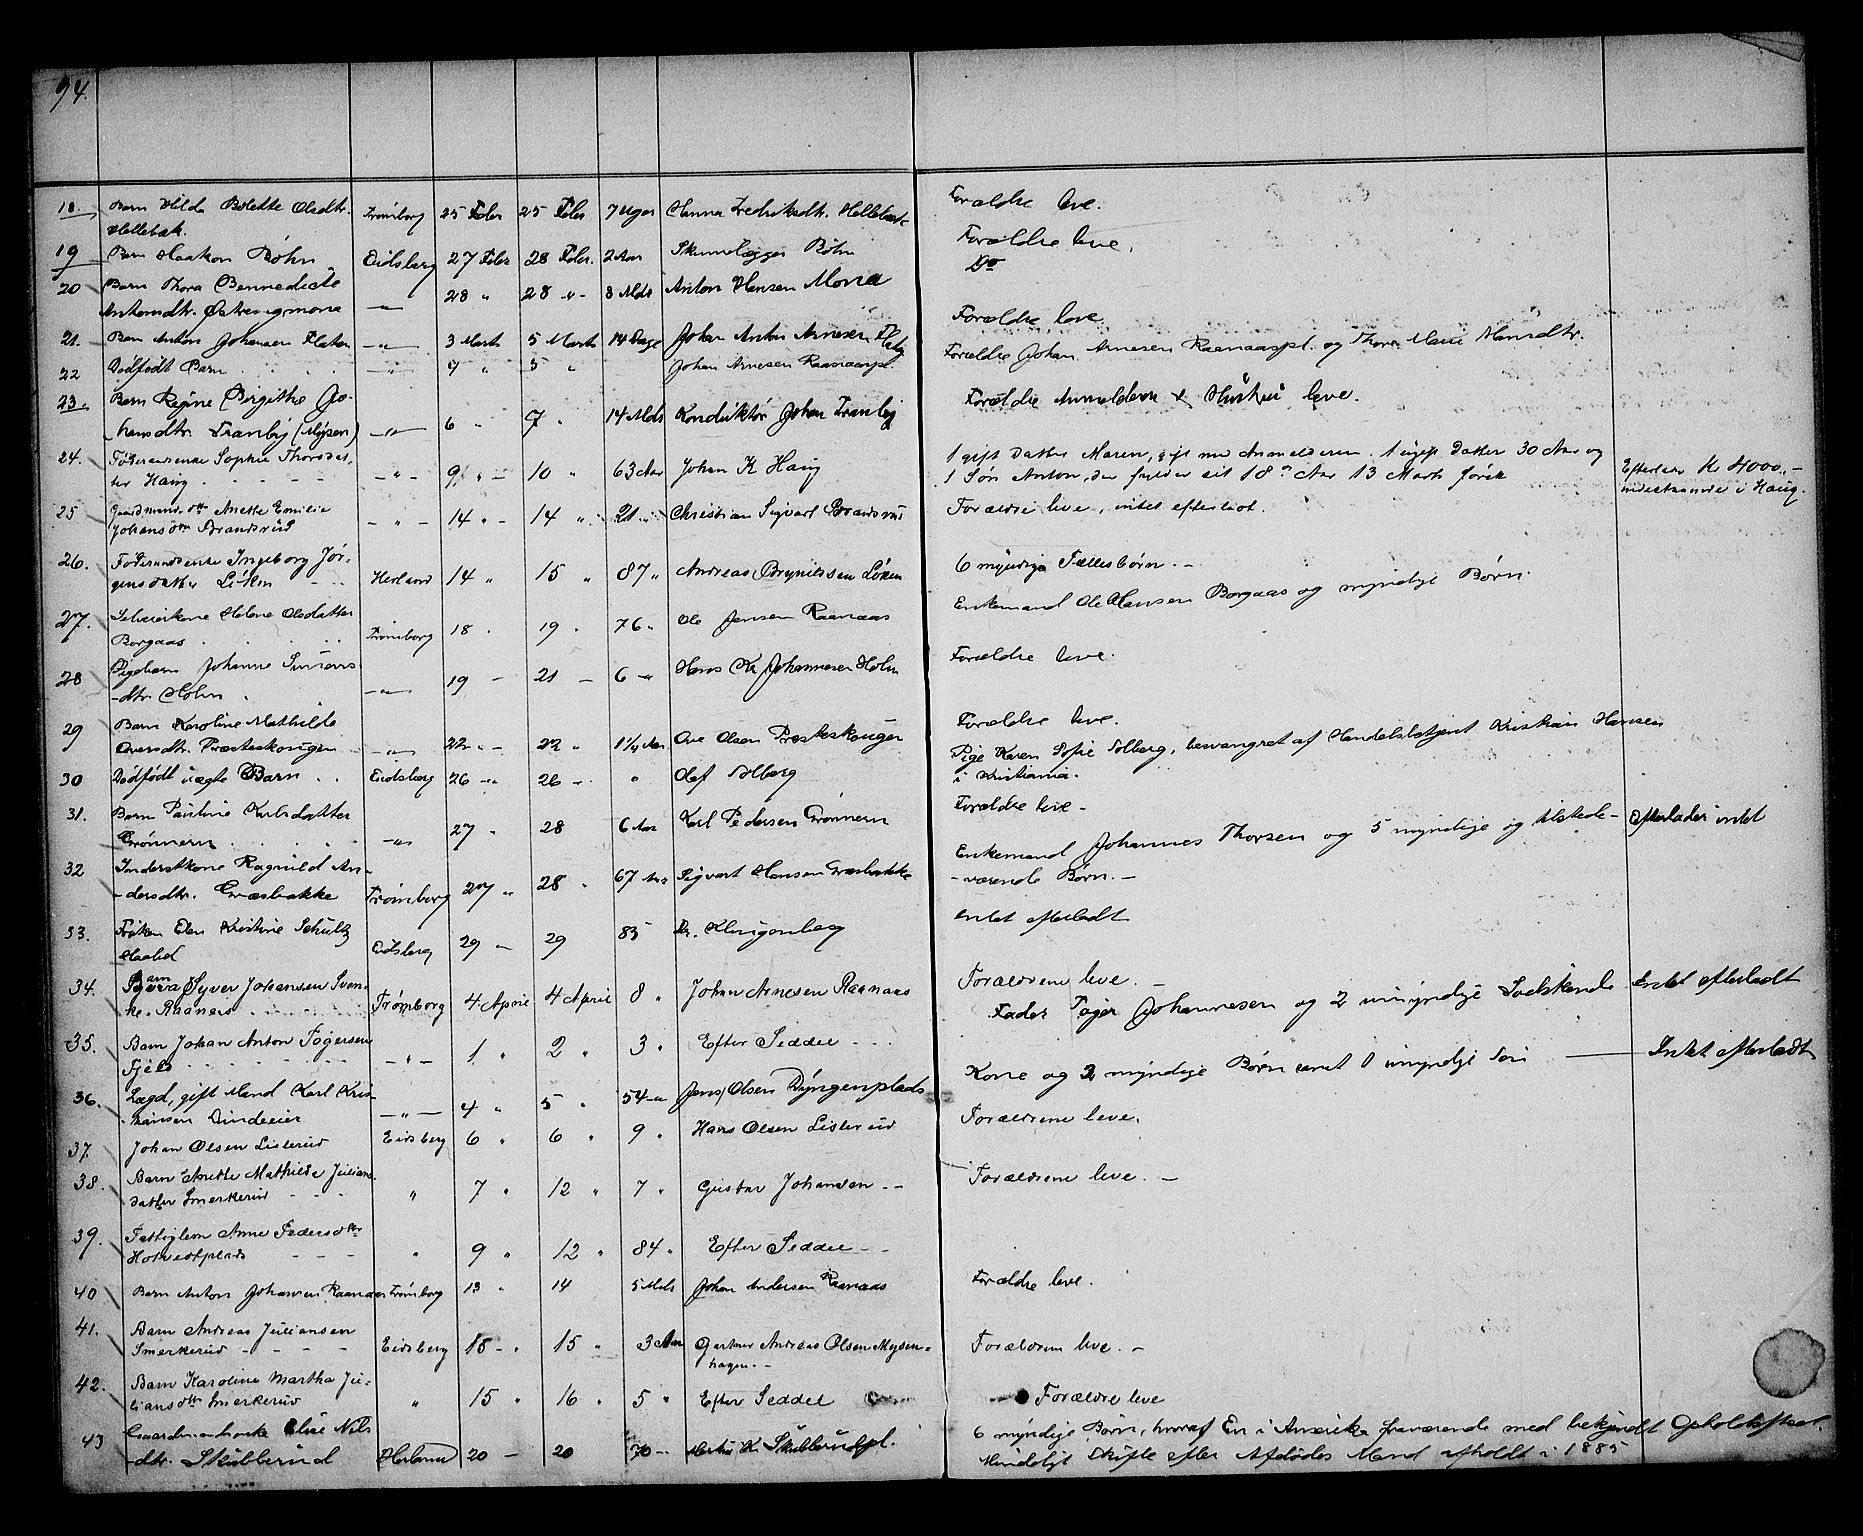 94.
18. Barn Hilda Bolette Olsdtr. Trømborg 25 Febr 25 Febr 7 Uger Hanna Fredriksdtr. Hellebæk Forældre leve.
Hellebæk.
19 Barn Haakon Bøhn Eidsberg 27 Febr 28 Febr. 2 Aar Bøhn Forældre leve.
20 Barn Thora Bennedicte —„— 28 „ 28 -„- 8 Mdr Anton Hansen Mona Do
Antonsdtr. Østrengmona
Forældre leve.
21. Barn Anton Johansen —„— 3 Marts 5 Marts 14 Dage Johan Anton Arnesen
22 Dødfødt Barn —„— 4 „ 5 „ Johan Arnesen Raanaaspl. Forældre Johan Arnesen Raanaaspl. og Thora Marie Hansdtr.
23. Barn Regine Birgithe Jo- 14 Mdr Konduktør Johan Tranby Forældre Anmelderen & Hustru leve.
hansdtr. Tranby (Mysen) —„— 6 „ 7 „
24. Føderaadsenke Sophie Thorsdat- -„- 9 „ 10 „ 63 Aar Johan K Haug 1 gift Datter Maren, gift med Anmelderen. 1 ugift Datter 30 Aar og
ter Haug 1 Søn Anton, der fylder sit 18de Aar 13 Marts Efterlader Kr 4000.-
indestaaende i Haug.
25 Gaardmandsdtr Anette Emilie -„- 14 „ 14 „ 21 „ Christian Sigvart Brandsrud Forældre leve, intet efterladt.
Johansdtr Brandsrud
26. Føderaadsenke Ingeborg Jør- Herland 14 „ 15 „ 87 „ Andreas Brynildsen Løken 6 myndige Fællesbørn. -
gensdatter Løken
27. Selveierkone Helene Olsdatter Trømborg 18 „ 19 „ 76 „ Ole Jensen Raanaas Enkemand Ole Hansen Borgaas og myndige Børn.
Borgaas
28 Pigebarn Johanne Simens- —„— 19 - 21 - 6 -„- Hans Kr Johannesen Holm Forældre leve.
-dtr. Holm
29 Barn Karoline Mathilde —„— 22 „ 22 „ 1 1/4 Aar Ove Olsen Præsteskougen Forældre leve.
Oversdtr. Præsteskougen
30 Dødfødt uægte Barn Eidsberg 26 -„- 26 - „ Olaf Solberg Pige Karen Sofie Solberg, besvangret af Handelsbetjent Kristian Hansen
i Kristiania.
31. Barn Pauline Karlsdatter —„— 27 „ 28 6 Aar Karl Pedersen Grønnern Forældre leve -
Grønnern
32 Inderstkone Ragnild An- Trømborg 27 „ 28 „ 67 Aar Sigvart Hansen Græsbakke Enkemand Johannes Thorsen og 5 myndige og tilstede- Efterlader intet
-dersdtr. Græsbakke -værende Børn. -
33. Frøken Elen Kristine Schultz Eidsberg 29 - 29 85 Dr. Klingenberg intet efterladt
Haabol
34. Barn Syver Johansen Trømborg 4 April 4 April 8 „ Johan Arnesen Raanaas Forældrene leve. -
35. Barn Johan Anton Tøgersen -„- 1 „ 2 „ 3 „ Efter Seddel - Fader Tøger Johannesen og 2 umyndige Sødskende Intet efterladt
Fjeld
36. Lægd, gift Mand Karl Kris- -„- 4 „ 5 „ 54 -„- Jens Olsen Dyngenplads Kone og 2 myndige Børn samt 1 umyndig Søn — Intet efterladt
tiansen Lindeeier
37. Johan Olsen Listerud Eidsberg 6 „ 6 „ 9 „ Hans Olsen Listerud Forældrene leve.
38. Barn Anette Mathilde Julians- „ 7 „ 12 „ 7 „ Gustav Johansen - - Forældrene leve. -
datter Smerkerud
39. Fattiglem Anne Pedersdtr „ 9 „ 12 „ 84 „ Efter Seddel - -
Hotvedtplads
40 Barn Anton Johansen Raanaas Trømborg 13 „ 14 5 Mdr Johan Andersen Raanaas Forældre leve.
41. Barn Andreas Juliansen Eidsberg 15 - „ 15 „ 3 Aar Gartner Andreas Olsen Mysen- Forældrene leve. -
Smerkerud hagen. -
42. Barn Karoline Martha Ju- „ 15 „ 16 „ 5 „ Efter Seddel Forældre leve
liansdtr Smerkerud
43 Gaardmandsenke Elise Nils Herland 20 - 20 70 - K Skubberudpl. 6 myndige Børn, hvoraf En i Amerika fraværende med bekjendt Opholdssted.
-dtr. Skubberud Mindeligt Skifte efter Afdødes Mand afholdt i 1885